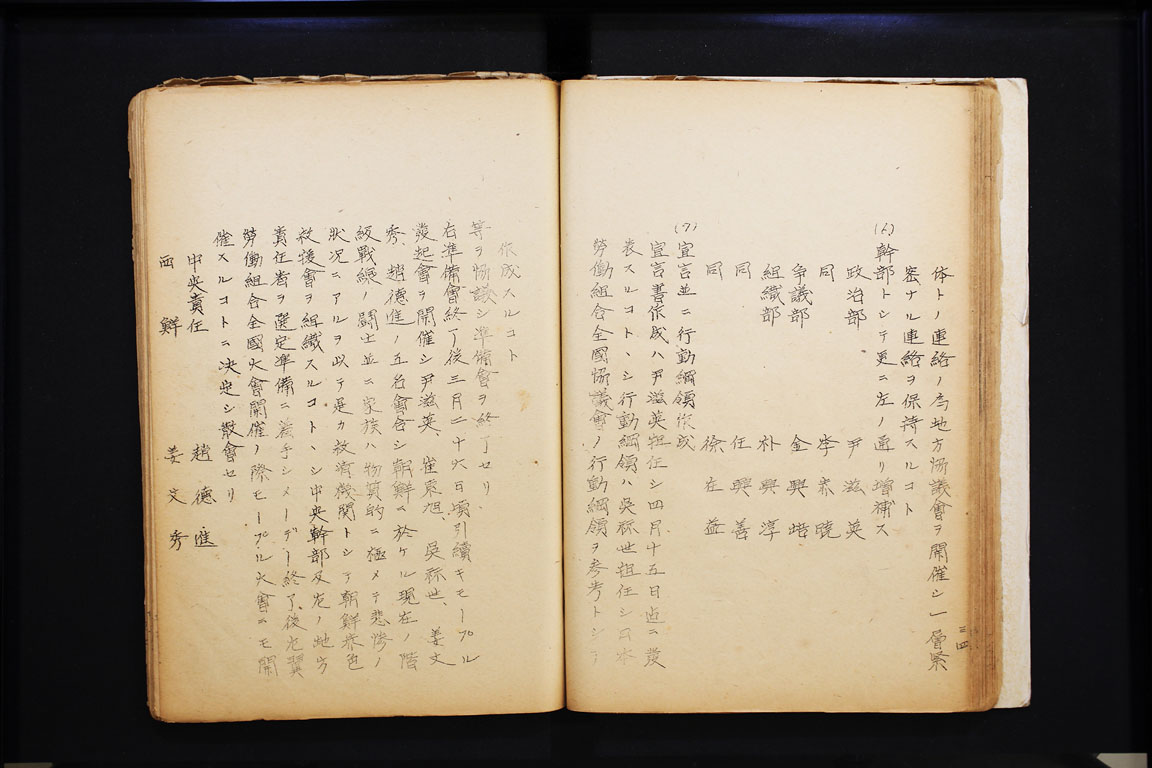 三四
体トノ連絡ノ為地方協議會ヲ開催シ一層緊
密ナル連絡ヲ保持スルコト
幹部トシテ更ニ左ノ通リ增補ス
政治部 尹滋英
同 李 曉
爭議部 金興
組織部 朴興淳
同 任興善
同 徐在益
(7)宣言並ニ行動綱領作成
宣言書作成ハ尹滋英担任シ四月十五日迄ニ發
表スルコトヽシ行動綱領ハ吳祘世担任シ日本
勞働組合全國協議會ノ行動綱領ヲ參考トシテ
作成スルコト
等ヲ協議シ準備會ヲ終了セリ
右準備會終了後三月二十六日頃引續キモープル
發起會ヲ開催シ尹滋英、崔東旭、吳祘世、姜文
秀、趙德進ノ五名會合シ朝鮮ニ於ケル現在ノ階
級戰線ノ鬪士並ニ家族ハ物質的ニ極メテ悲慘ノ
狀況ニアルヲ以テ是カ救濟機関トシテ朝鮮赤色
救援會ヲ組織スルコトヽシ中央幹部及左ノ地方
責任者ヲ選定準備ニ着手シメーデー終了後左翼
勞働組合全國大會開催ノ際モープル大會ニモ開
催スルコトニ決定シ散會セリ
中央責任 趙德進
西鮮 姜文秀